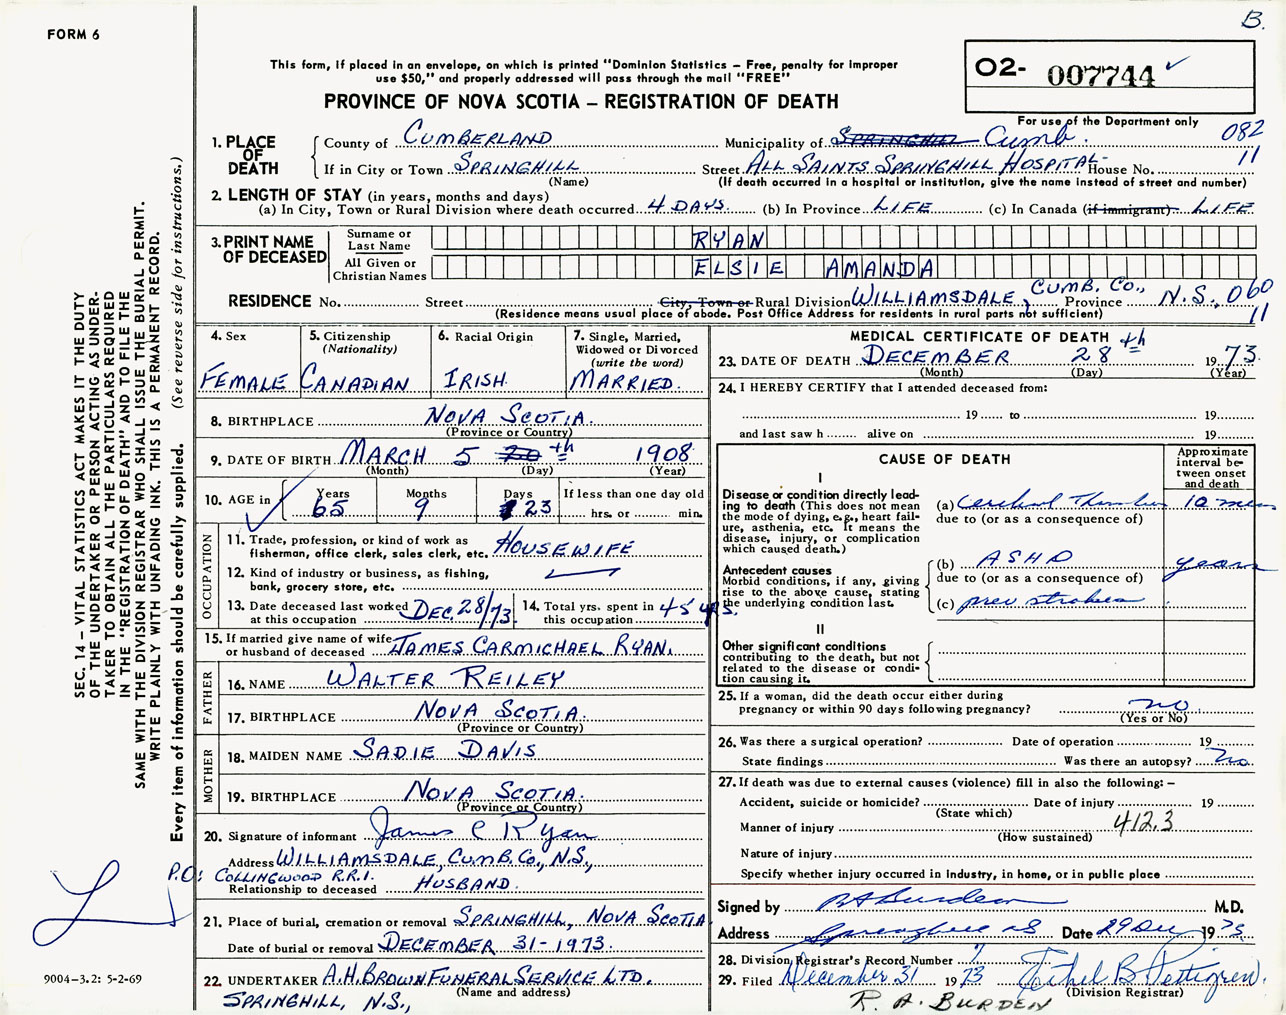 B.
FORM 6
This form, if placed in an envelope, on which is printed "Dominion Statistics – Free, penalty for improper
use $50," and properly addressed will pass through the mail "FREE"
PROVINCE OF NOVA SCOTIA – REGISTRATION OF DEATH
O2- 007744
For use of the Department only
082
11
1. PLACE OF DEATH
County of CUMBERLAND Municipality of SPRINGHILL Cumb.
If in City or Town SPRINGHILL Street ALL SAINTS SPRINGHILL HOSPITAL House No.
(Name) (If death occurred in a hospital or institution, give the name instead of street and number)
2. LENGTH OF STAY (in years, months and days)
(a) In City, Town or Rural Division where death occurred 4 DAYS. (b) In Province LIFE (c) In Canada (if immigrant) LIFE
3. PRINT NAME OF DECEASED
Surname or Last Name RYAN
All Given or Christian Names ELSIE AMANDA
RESIDENCE No. Street City, Town or Rural Division WILLIAMSDALE, CUMB. CO., Province N.S., 060
11
(Residence means usual place of abode. Post Office Address for residents in rural parts not sufficient)
4. Sex
FEMALE
5. Citizenship
(Nationality)
CANADIAN
6. Racial Origin
IRISH
7. Single, Married,
Widowed or Divorced
(write the word)
MARRIED.
8. BIRTHPLACE NOVA SCOTIA.
(Province or Country)
9. DATE OF BIRTH MARCH 5 20 th 1908
(Month) (Day) (Year)
10. AGE in Years 65 Months 9 Days 23 If less than one day old
hrs. or min.
OCCUPATION
11. Trade, profession, or kind of work as
fisherman, office clerk, sales clerk, etc. HOUSEWIFE
12. Kind of industry or business, as fishing,
bank, grocery store, etc.
13. Date deceased last worked
at this occupation DEC. 28/73
14. Total yrs. spent in
this occupation 45 yrs.
15. If married give name of wife
or husband of deceased JAMES CARMICHAEL RYAN.
FATHER
16. NAME WALTER REILEY
17. BIRTHPLACE NOVA SCOTIA.
(Province or Country)
MOTHER
18. MAIDEN NAME SADIE DAVIS
19. BIRTHPLACE NOVA SCOTIA.
(Province or Country)
20. Signature of informant James C Ryan
Address WILLIAMSDALE, CUMB. CO., N.S.,
P.O: COLLINGWOOD R.R.1.
Relationship to deceased HUSBAND.
21. Place of burial, cremation or removal SPRINGHILL, NOVA SCOTIA
Date of burial or removal DECEMBER 31-1973.
22. UNDERTAKER A.H. BROWN FUNERAL SERVICE LTD.
(Name and address)
SPRINGHILL, N.S.,
MEDICAL CERTIFICATE OF DEATH
23. DATE OF DEATH DECEMBER 28th 1973.
(Month) (Day) (Year)
24. I HEREBY CERTIFY that I attended deceased from:
19 to 19
and last saw h alive on 19
CAUSE OF DEATH
Approximate
interval be-
tween onset
and death
I
Disease or condition directly lead-
ing to death (This does not
mean the mode of dying, e.g., heart fail-
ure, asthenia, etc. It means the
disease, injury, or complication
which caused death.)
(a) Cerebral Thrombus
due to (or as a consequence of)
Antecedent causes
Morbid conditions, if any, giving
rise to the above cause, stating
the underlying condition last.
(b) ASHD years
due to (or as a consequence of)
(c) prev strokes
II
Other significant conditions
contributing to the death, but not
related to the disease or condi-
tion causing it.
25. If a woman, did the death occur either during
pregnancy or within 90 days following pregnancy? no
(Yes or No)
26. Was there a surgical operation? Date of operation 19
State findings Was there an autopsy? no
27. If death was due to external causes (violence) fill in also the following: –
Accident, suicide or homicide? Date of injury 19
(State which)
Manner of injury 412.3
(How sustained)
Nature of injury
Specify whether injury occurred in industry, in home, or in public place
Signed by RA Burden M.D.
Address Springhill NS Date 29 Dec 1973
28. Division Registrar's Record Number 7
29. Filed December 31 1973 Ethel B Pettigrew.
(Division Registrar)
R. A. BURDEN
SEC. 14 – VITAL STATISTICS ACT MAKES IT THE DUTY
OF THE UNDERTAKER OR PERSON ACTING AS UNDER-
TAKER TO OBTAIN ALL THE PARTICULARS REQUIRED
IN THE "REGISTRATION OF DEATH" AND TO FILE THE
SAME WITH THE DIVISION REGISTRAR WHO SHALL ISSUE THE BURIAL PERMIT.
WRITE PLAINLY WITH UNFADING INK. THIS IS A PERMANENT RECORD.
Every item of information should be carefully supplied. (See reverse side for instructions.)
9004–3.2: 5-2-69